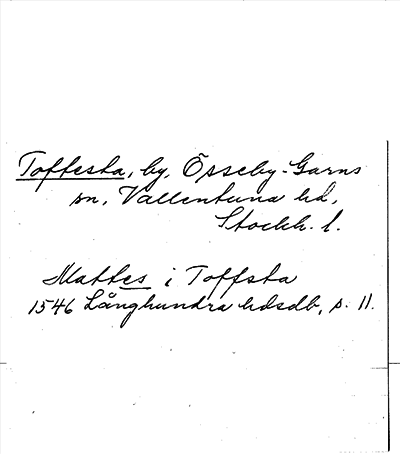 Toffesta, by, Össeby-Garns
sn, Vallentuna hd,
Stockh. l.
Mattes i Toffsta
1546 Långhundra hdsdb, s. 11.